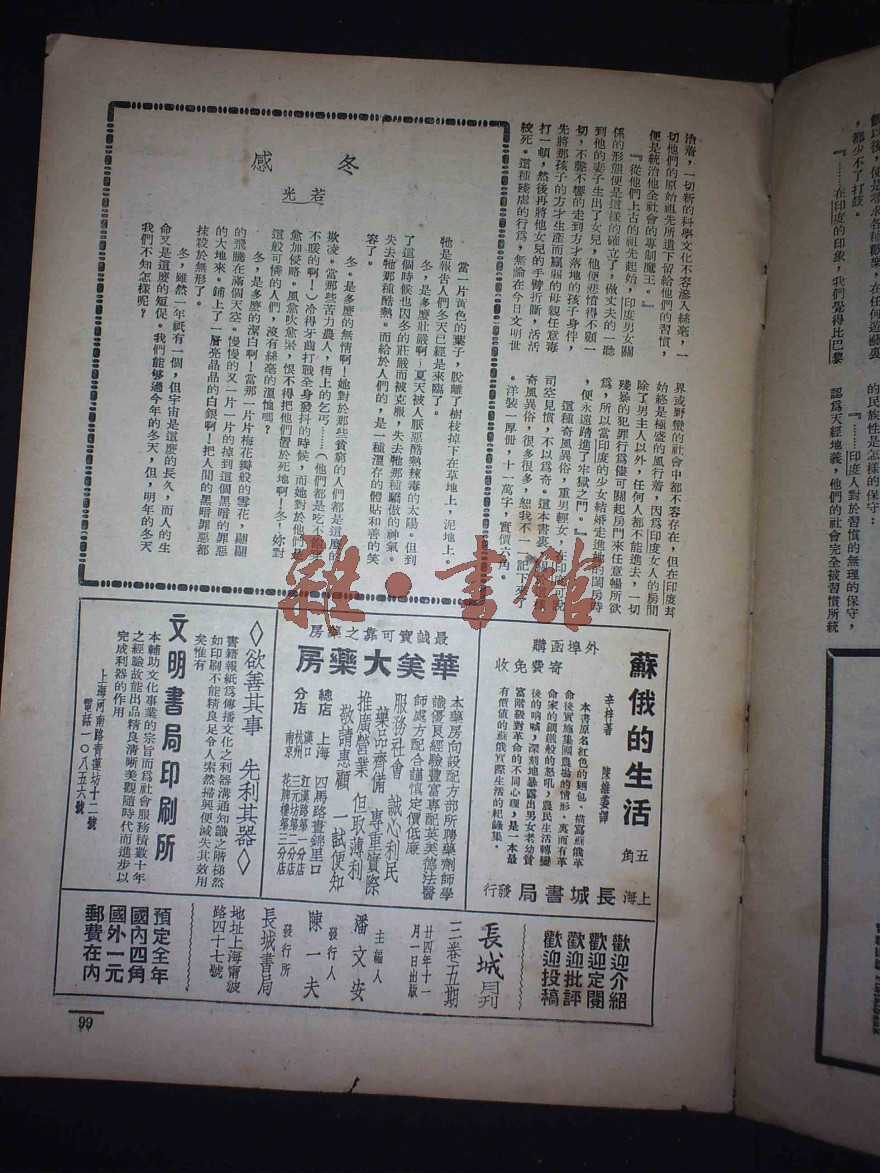 治着，一切新的科學文化不容滲入絲毫，一
切他們的原始祖先所遺下留給他們的習慣，
便是統治他全社會的專制魔王。』
『從他們上古的祖先起始，印度男女關
係的形態便是這樣的確立了。做丈夫的一聽
到他的妻子生出了女兒，他便悲憤得不顧一
切，不聲不響的走到方才落地的孩子身伴，
先將那孩子的方才生產而羸弱的母親任意毒
打一頓，然後再將他女兒的手臂折斷，活活
絞死。這種殘虐的行爲，無論在今日文明世
界或野蠻的社會中都不容存在，但在印度却
始終是極盛的風行着，因爲印度女人的房間
除了男主人以外，任何人都不能進去，一切
殘暴的犯罪行爲儘可關起房門來任意暢所欲
爲，所以當印度的少女結婚走進她的閨房時
，便永遠踏進了牢獄之門。』
這種奇風異俗，重男輕女，在印度可說
司空見慣，不以爲奇。這本書裏
奇風異俗，很多很多，恕我不一一記下來了
。洋裝一厚冊，十一萬字，實價六角。
冬感
若光
當一片黃色的葉子，脫離了樹枝掉下在草地上，泥地上。
牠是報告人們冬天已經是來臨了。
冬，是多麼壯嚴啊！夏天被人厭惡酷熱辣毒的太陽。但到
了這個時候也因冬的壯嚴而被克服，失去牠那種驕傲的神氣。
失去牠那種酷熱。而給於人們的，是一種溫存的體貼和善的笑
容了。
冬。是多麼的無情啊！她對於那些貧窮的人們都是這麼的
欺凌。當那些苦力農人，街上的乞丐……（他們都是吃不飽穿
不暖的啊！）冷得牙齒打戰全身發抖的時候，而她對於他們是
愈加侵略。風愈吹愈緊，恨不得把他們置於死地啊！冬！妳對
這般可憐的人們，沒有絲毫的溫恤嗎？
冬，是多麼的潔白啊！當那一片片梅花瓣般的雪花，翩翩
的飛騰在滿個天空。慢慢的又一片一片的掉到這個黑暗的罪惡
的大地來。鋪上了一層亮晶晶的白銀啊！把人間的黑暗罪惡都
抹殺於無形了。
冬，雖然一年祇有一個，但宇宙是這麼的長久，而人的生
命又是這麼的短促。我們能够過今年的冬天，但，明年的冬天
我們不知怎樣呢？
外埠函購
寄費免收
蘇俄的生活
辛梓著
陳維委譯
五角
本書原名紅色的麵包．描寫蘇俄革
命後實施集團農場的情形．寓而有革
命家的鋼鐵般的怒吼，農民生活轉變
後的吶喊，深刻地暴露出男女老幼貧
富階級對革命的不同心理，是一本最
有價值的蘇俄實際生活的紀錄集．
上海長城書局發行
最誠實可靠之藥房
華美大藥房
本藥房向設配方部所聘藥劑師學
識優良經驗豐富專配英美德法醫
師處方配合謹慎定價低廉
服務社會　誠心利民
藥品齊備　專重實際
推廣營業　但取薄利
敬請惠顧　一試便知
總店　上海　四馬路畫錦里口
分店　漢口　江漢路第一分店
杭州　三元坊第二分店
南京　花牌樓第三分店
欲善其事　先利其器
書籍報紙爲傳播文化之利器溝通知識之階梯然
如印刷不能精良足令人索然掃興便減失其效用
矣惟有
文明書局印刷所
本輔助文化事業的宗旨而爲社會服務積數十年
之經驗故能出品精良清晰美觀隨時代而進步以
完成利器的作用
上海河南路青蓮坊十二號
電話一〇八五六號
歡迎介紹
歡迎定閱
歡迎批評
歡迎投稿
長城月刊
三卷五期
廿四年十一月一日出版
主編人
潘文安
發行人
陳一夫
發行所
長城書局
地址上海甯波
路四十七號
預定全年
國內四角
國外一元
郵費在內
99
，都少不了打敲。
『……在印度的印象，我們覺得比巴黎
的民族性是怎樣的保守：
『……印度人對於習慣的無理的保守，
認爲天經地義，他們的社會完全被習慣所統
雜·書館